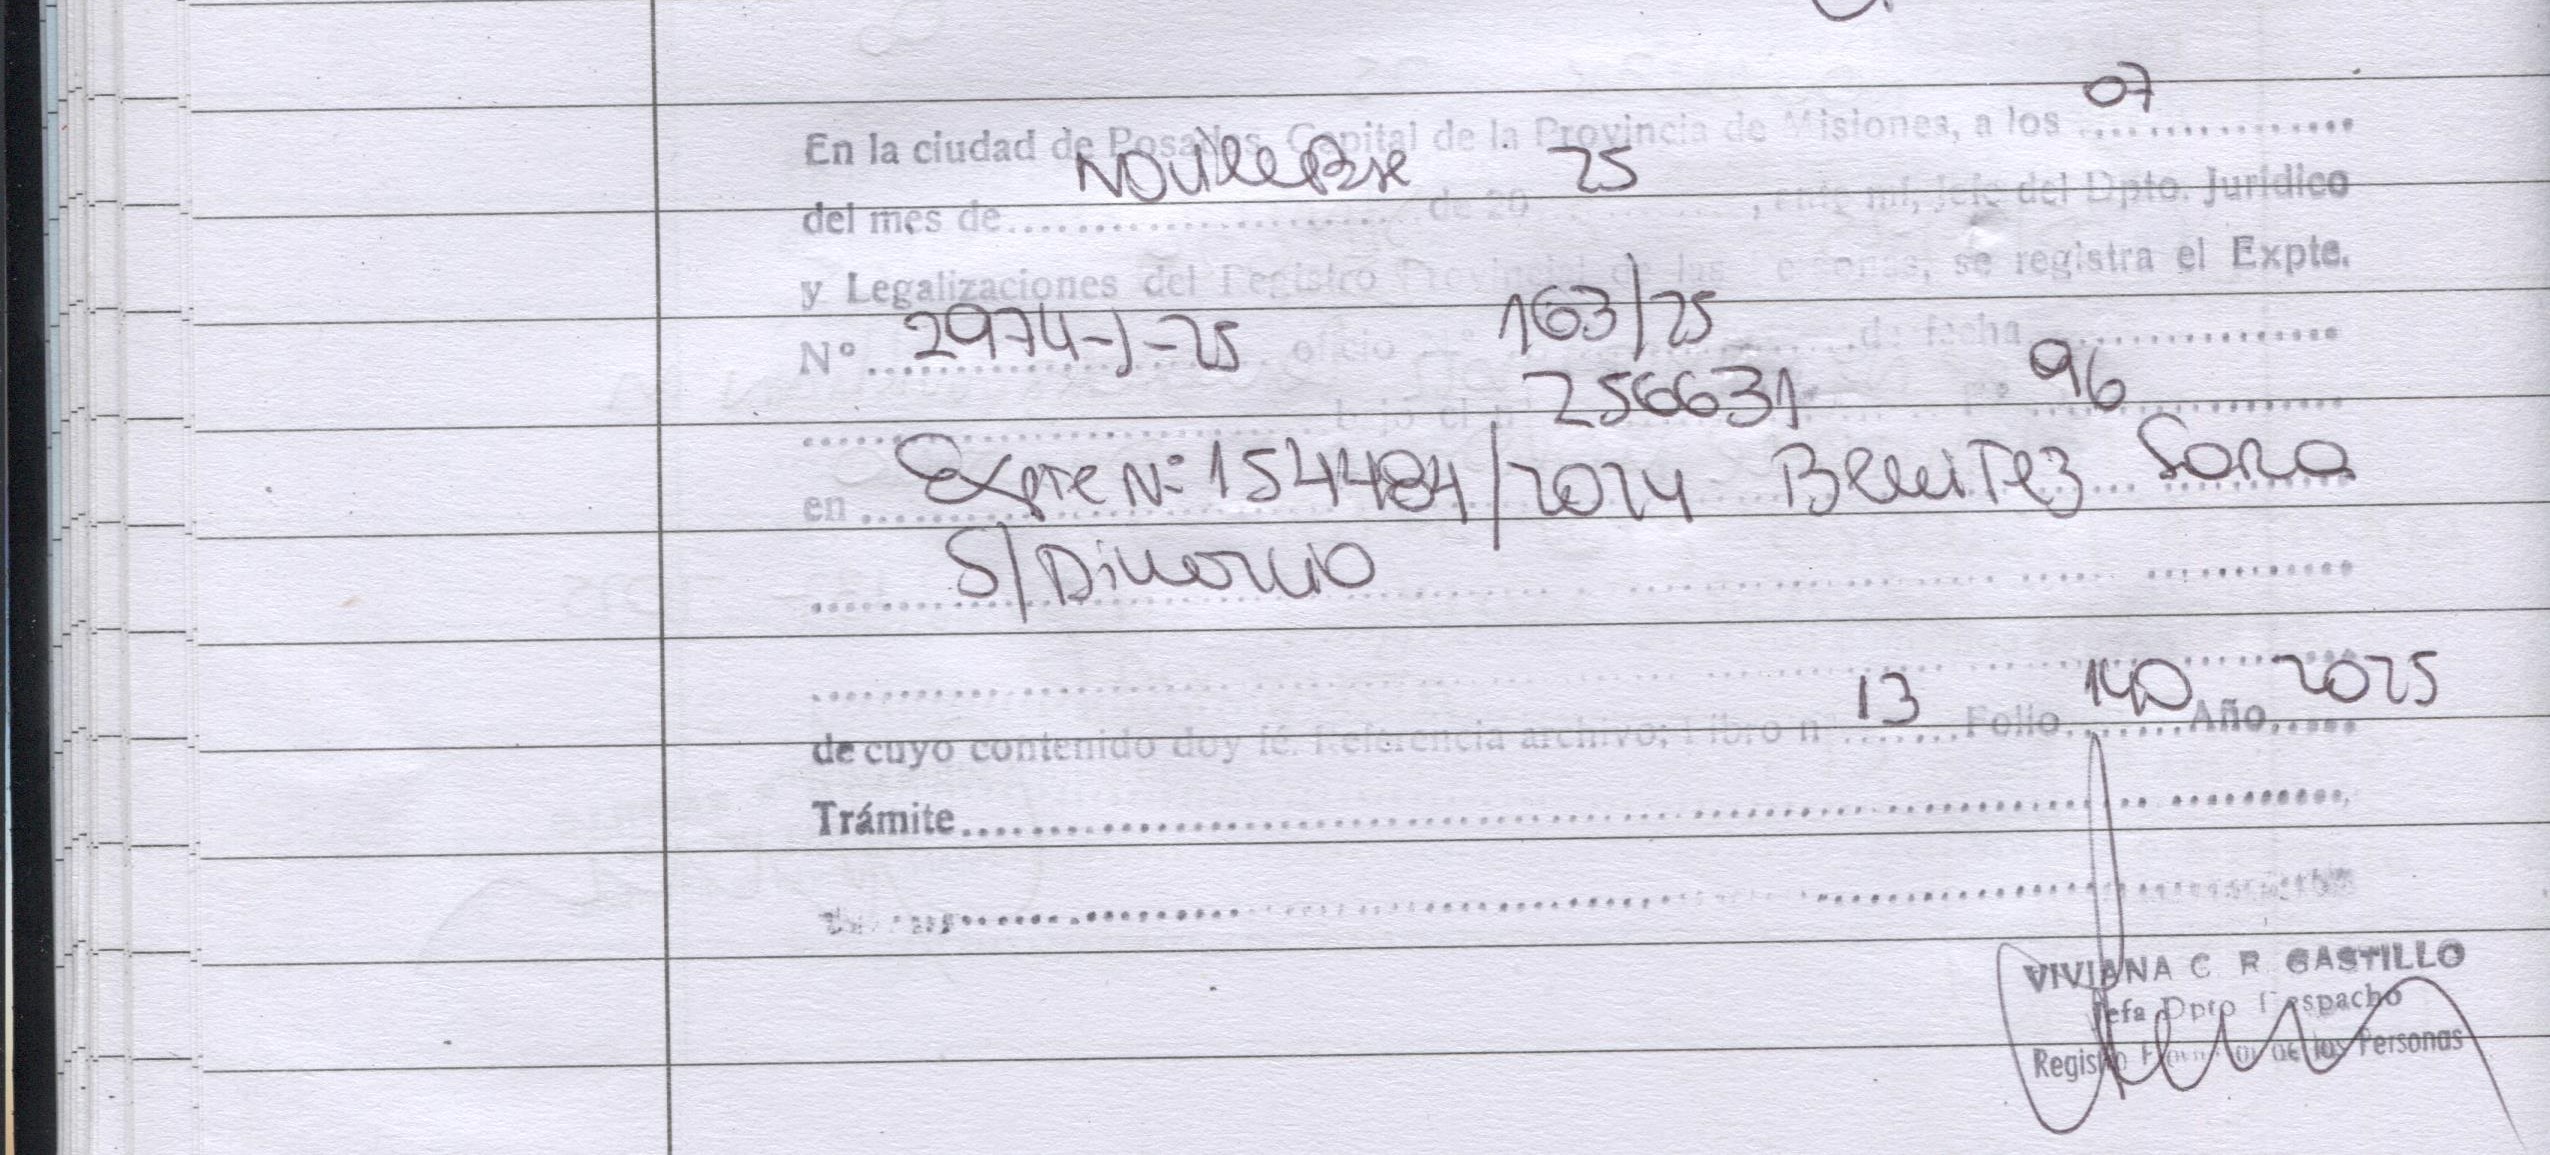 En la ciudad de Posadas, Capital de la Provincia de Misiones, a los 07
del mes de Noviembre de 20 25, ante mi, jefe del Dpto. Juridico
y Legalizaciones del Registro Provincial de las Personas, se registra el Expte.
Nº 2974-J-25 oficio Nº 163/25 de fecha
bajo el Nº 256631 Fº 96
en Expte Nº 154484/2024 Benitez Sara
S/Divorcio
de cuyo contenido doy fé. Referencia archivo; Libro nº 13 Folio 140 Año 2025
Trámite
VIVIANA C R CASTILLO
Jefa Dpto Despacho
Registro Provincial de las Personas